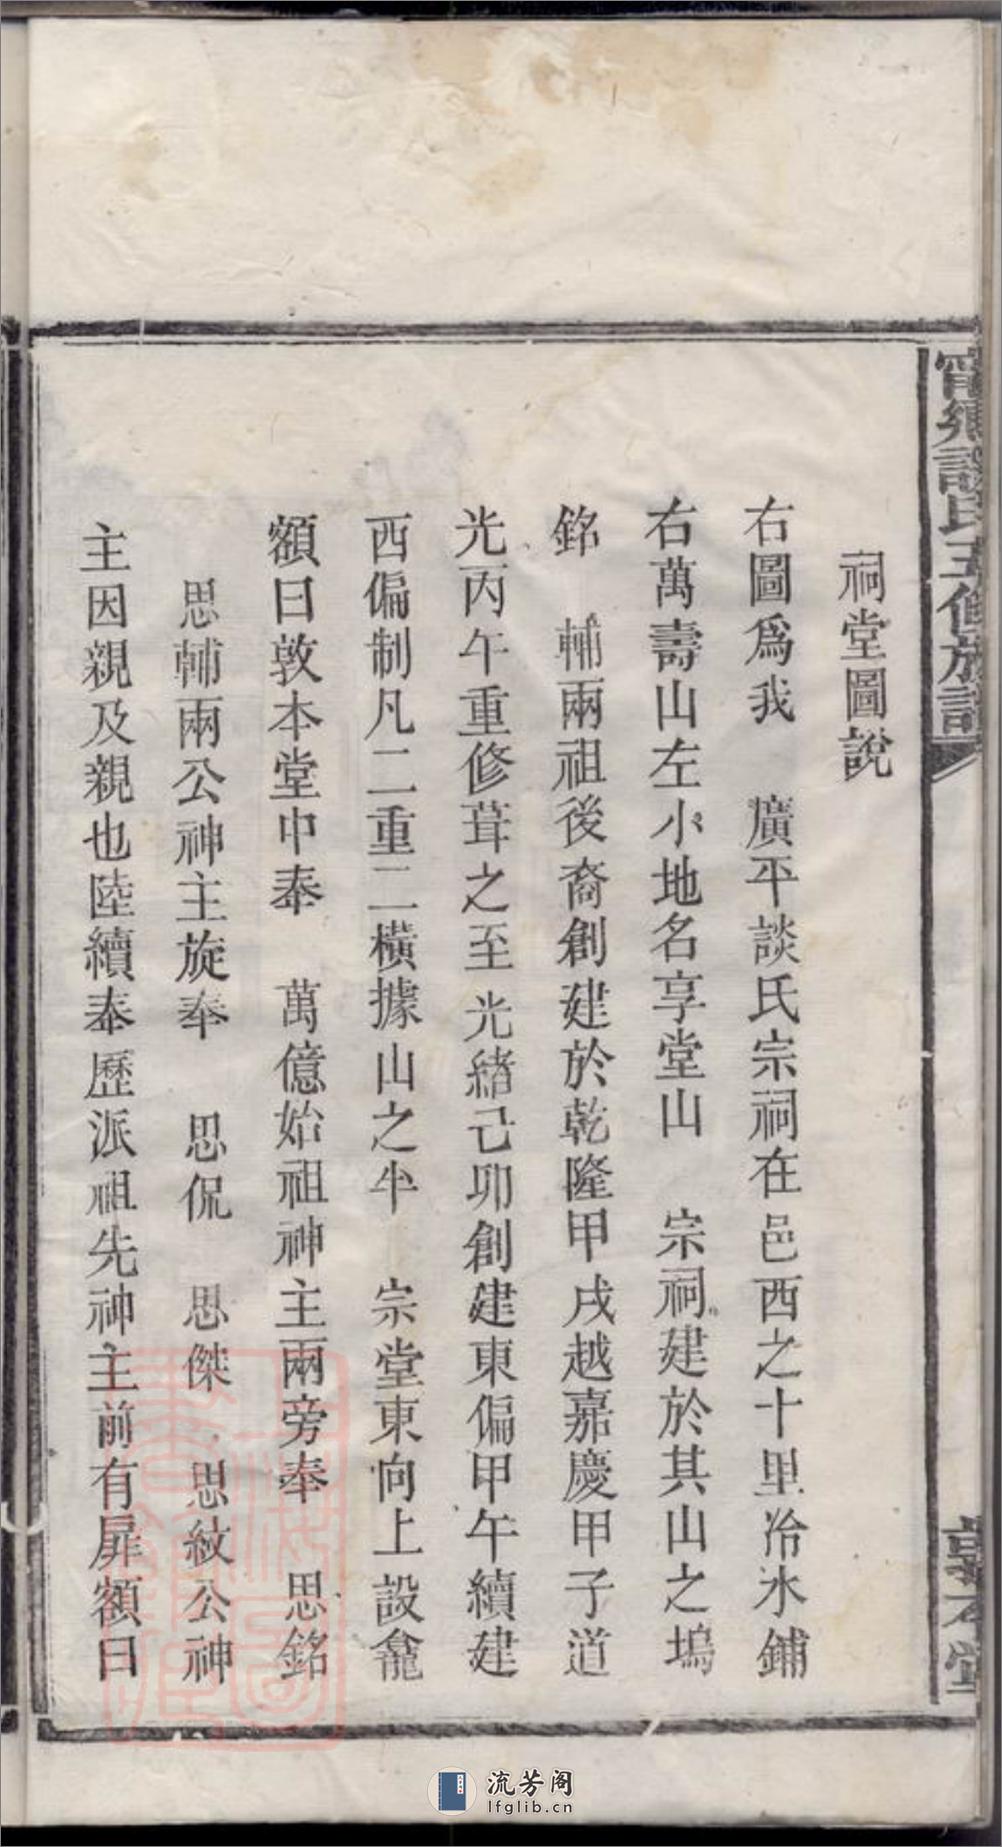 祠堂圖說
右圖爲我　廣平談氏宗祠在邑西之十里冶水鋪
右萬壽山左小地名享堂山　宗祠建於其山之塢
銘　輔兩祖後裔創建於乾隆甲戌越嘉慶甲子道
光丙午重修葺之至光緒己卯創建東偏甲午續建
西偏制凡二重二橫據山之半　宗堂東向上設龕
額曰敦本堂中奉　萬億始祖神主兩旁奉　思銘
思輔兩公神主旋奉　思侃　思傑　思紋公神
主因親及親也陸續奉歷派祖先神主前有扉額曰
甯鄉談氏五修族譜
敦本堂
流芳阁
lfglib.cn